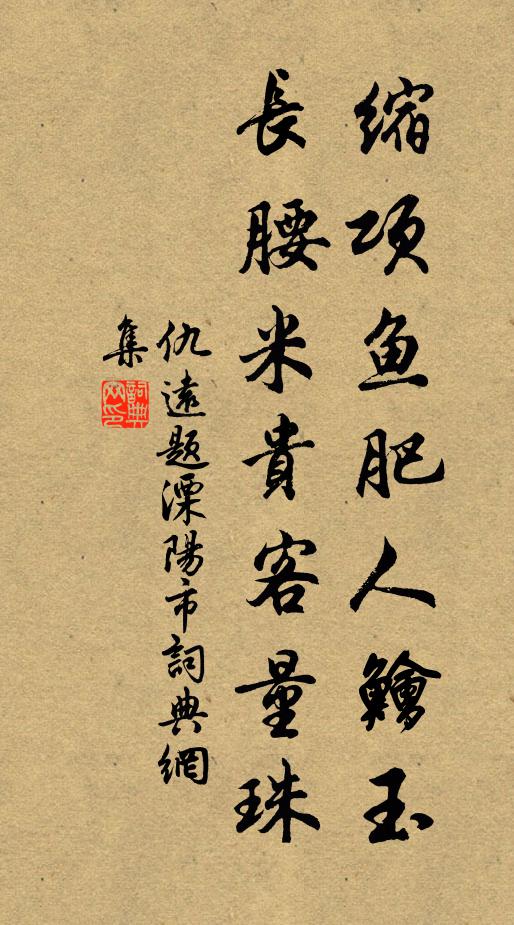 缩项鱼肥人鱠玉
長腰米貴客量珠
仇遠題溧陽市詞典網
集
詞典网印